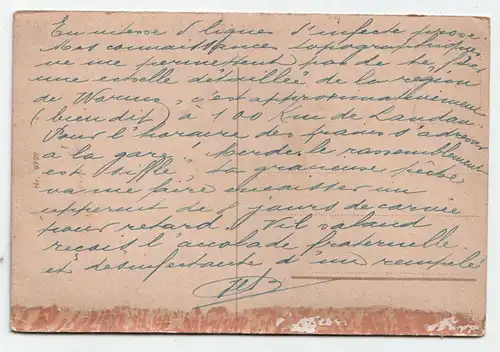 En vitesse 5 lignes d'infecte prose
Mes connaissances topographiques
ne me permettent pas de te fais
une echelle détaillée de la région
de Worms, c'est approximativement
(bien dit) à 100 Km de Landau.
Pour l'horaire des trains s'adresser
à la gare! Merde, le rassemblement
est sifflé, ta graneuse pêche
va me faire encaisser un
upperrut de 8 jours de corvée
pour retard. Vil salaud
reçois l'accolade fraternelle
et desinfectante d'un rempilé